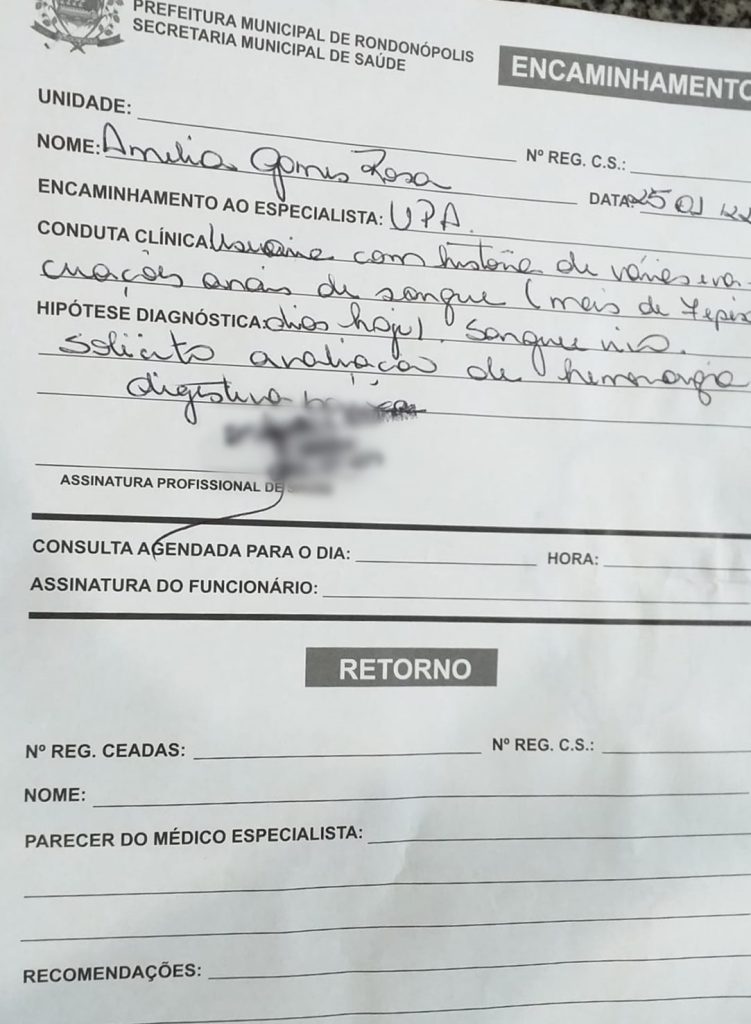 PREFEITURA MUNICIPAL DE RONDONÓPOLIS
SECRETARIA MUNICIPAL DE SAÚDE
ENCAMINHAMENTO
UNIDADE:
NOME: Amelia Gomes Rosa Nº REG. C.S.:
DATA: 25 01 22
ENCAMINHAMENTO AO ESPECIALISTA: UPA.
CONDUTA CLÍNICA: Usuária com história de várias eva-
cuações anais de sangue (mais de 7 epis
HIPÓTESE DIAGNÓSTICA: dios hoje). Sangue vivo.
Solicito avaliação de hemorragia
digestiva
ASSINATURA PROFISSIONAL DE
CONSULTA AGENDADA PARA O DIA: HORA:
ASSINATURA DO FUNCIONÁRIO:
RETORNO
Nº REG. CEADAS: Nº REG. C.S.:
NOME:
PARECER DO MÉDICO ESPECIALISTA:
RECOMENDAÇÕES: